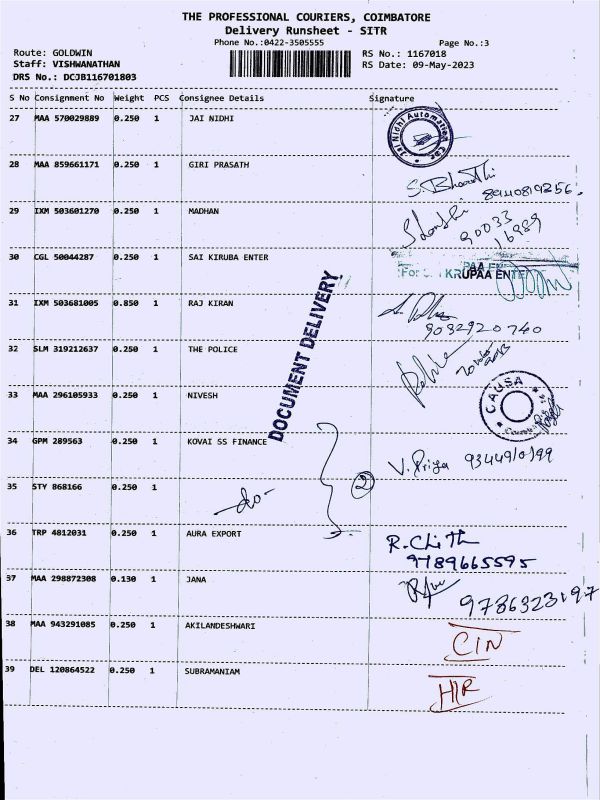 THE PROFESSIONAL COURIERS, COIMBATORE
Delivery Runsheet - SITR
Phone No.:0422-3505555
Page No.:3
Route: GOLDWIN
RS No.: 1167018
Staff: VISHWANATHAN
RS Date: 09-May-2023
DRS No.: DCJB116701803
S No Consignment No Weight PCS Consignee Details Signature
27 MAA 570029889 0.250 1 JAI NIDHI
Jai Nidhi Automation
28 MAA 859661171 0.250 1 GIRI PRASATH
S. Bharathi
8940819256.
29 IXM 503601270 0.250 1 MADHAN
90033
16989
30 CGL 50044287 0.250 1 SAI KIRUBA ENTER
For KRUPAA ENTE
31 IXM 503681005 0.850 1 RAJ KIRAN
9032920740
DOCUMENT DELIVERY
32 SLM 319212637 0.250 1 THE POLICE
33 MAA 296105933 0.250 1 NIVESH
CAUSA
34 GPM 289563 0.250 1 KOVAI SS FINANCE
V. Priya 9344910199
35 STY 868166 0.250 1
-do-
2
36 TRP 4812031 0.250 1 AURA EXPORT
R. Chith
9789665595
37 MAA 298872308 0.130 1 JANA
9786323197
38 MAA 943291085 0.250 1 AKILANDESHWARI
CIN
39 DEL 120864522 0.250 1 SUBRAMANIAM
HIR